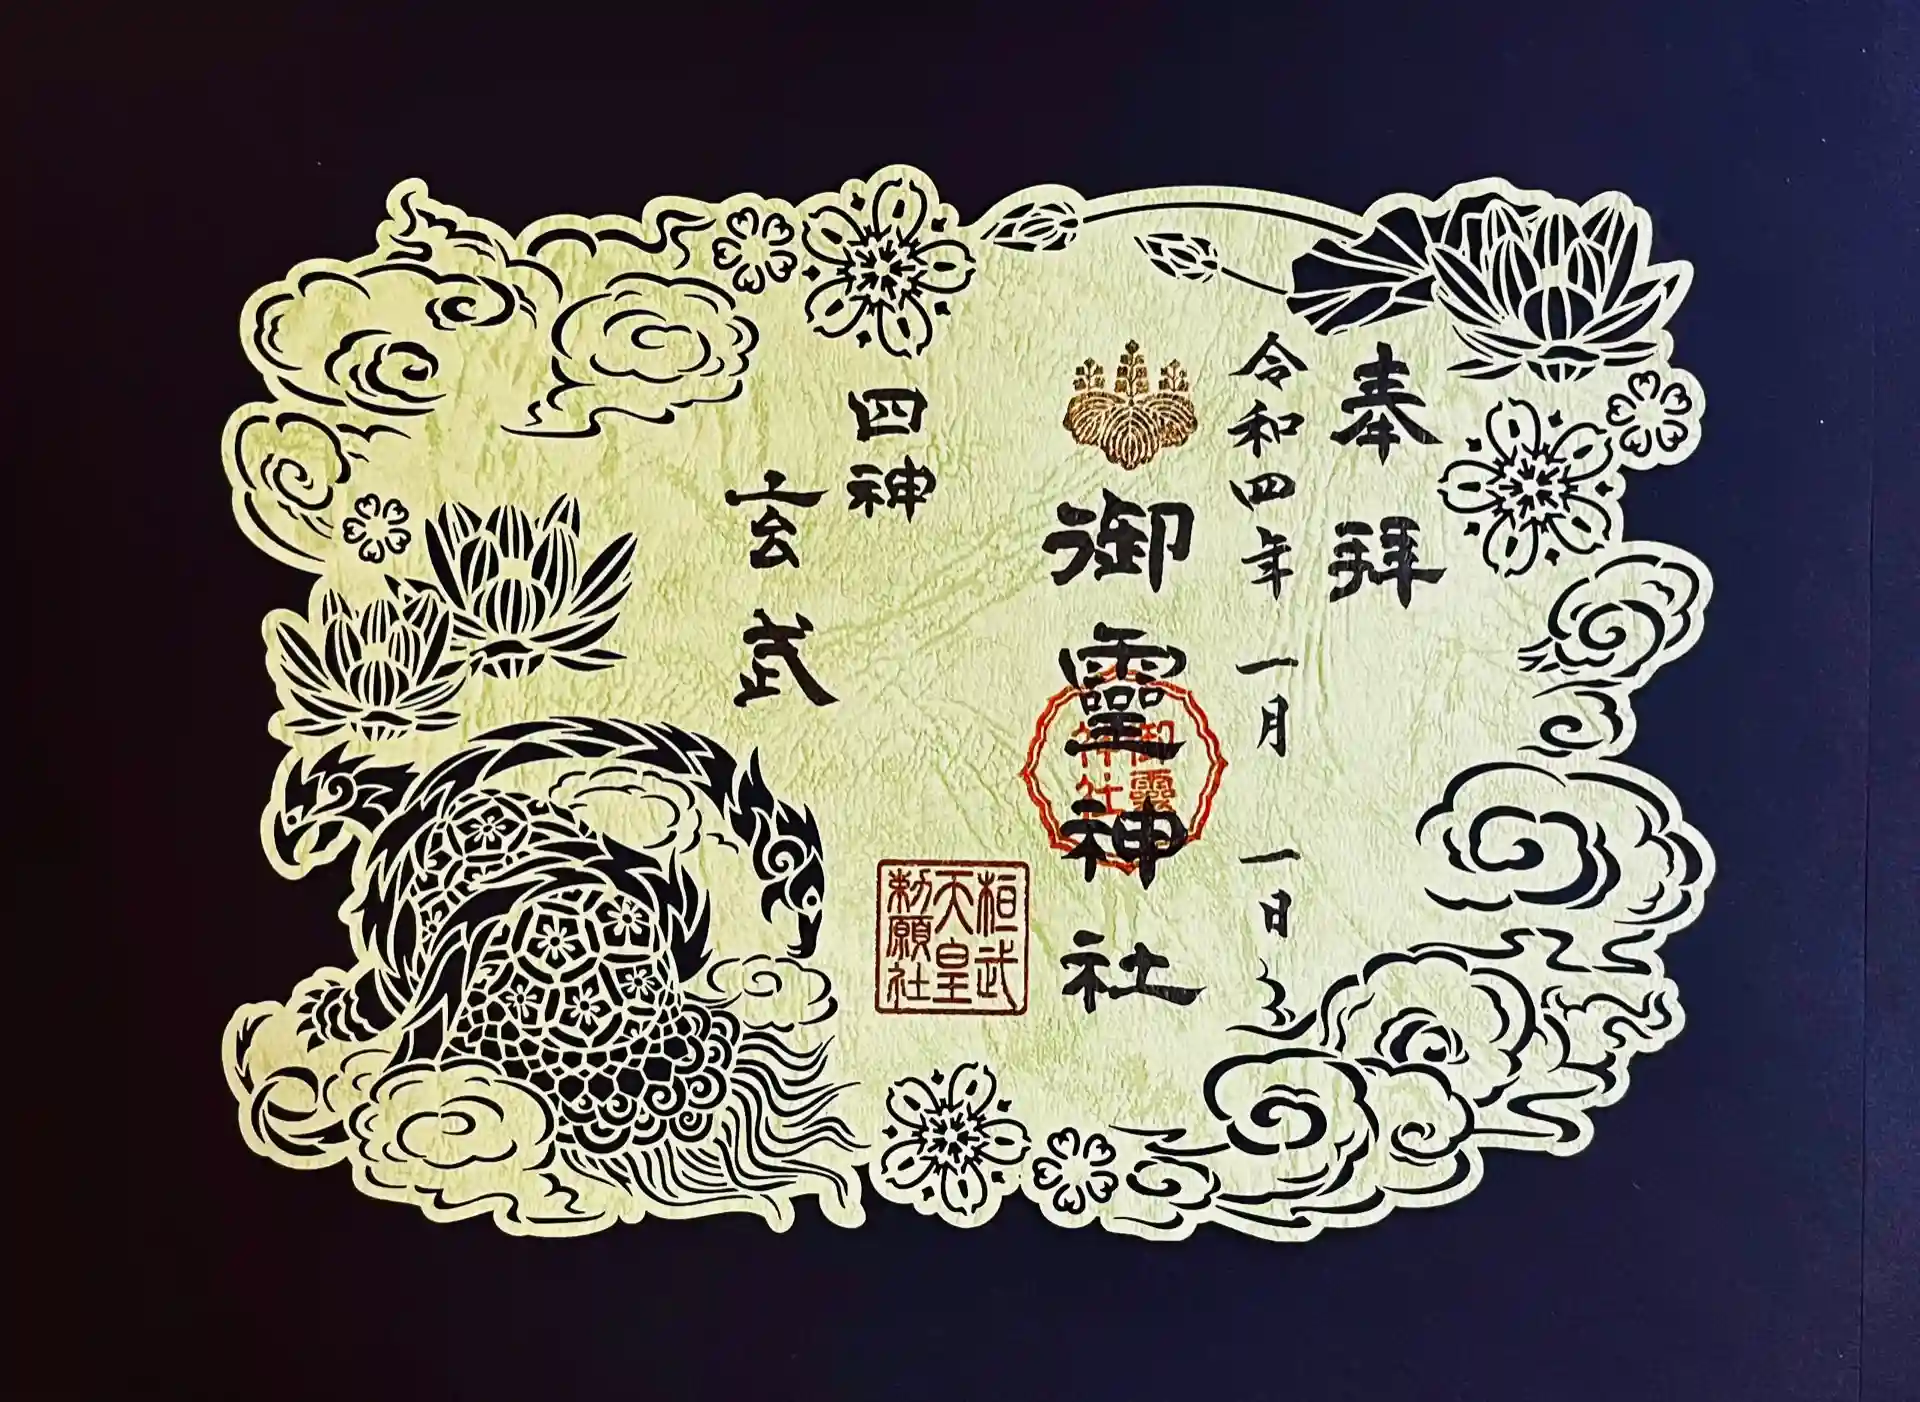 奉拜
令和四年一月一日
御靈神社
御靈神社
桓武天皇勅願社
四神
玄武